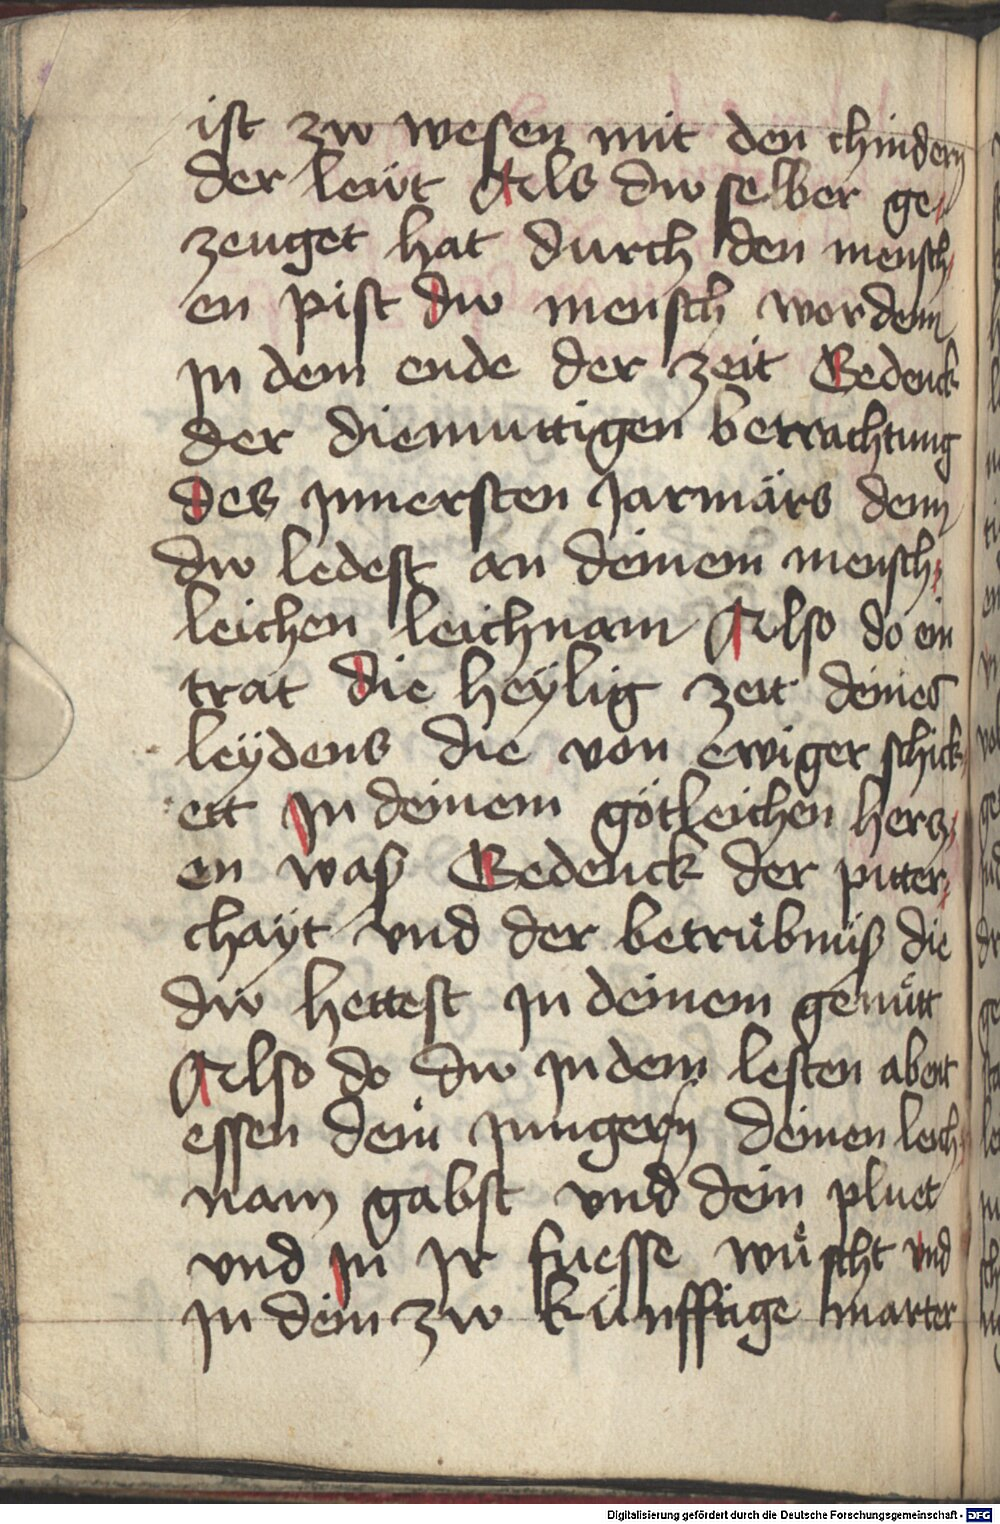 ist zw wesen mit den chindern
der lewt Als dw selber ge¬
zeuget hat durch den mensch¬
en pist dw mensch worden
in dem ende der zeit Gedenck
der diemuttigen betrachtung
des jnnersten Jarmärs denn
dw ledest an deinem mensch¬
leichen leichnam Also do ein
trat die heÿlig zeit deines
leÿdens die von ewiger schick¬
ett jn deinem götleichen hercz¬
en was Gedenck der pitter¬
chaÿt vnd der betrübnüs die
dw hettest jn deinem gemütt
Also do dw jn dem lesten abent
essen dein jungern deinen leich¬
nam gabst vnd dein pluet
vnd jn jr fuesse wüscht vnd
jn dein zw künfftige marter
Digitalisierung gefördert durch die Deutsche Forschungsgemeinschaft - DFG